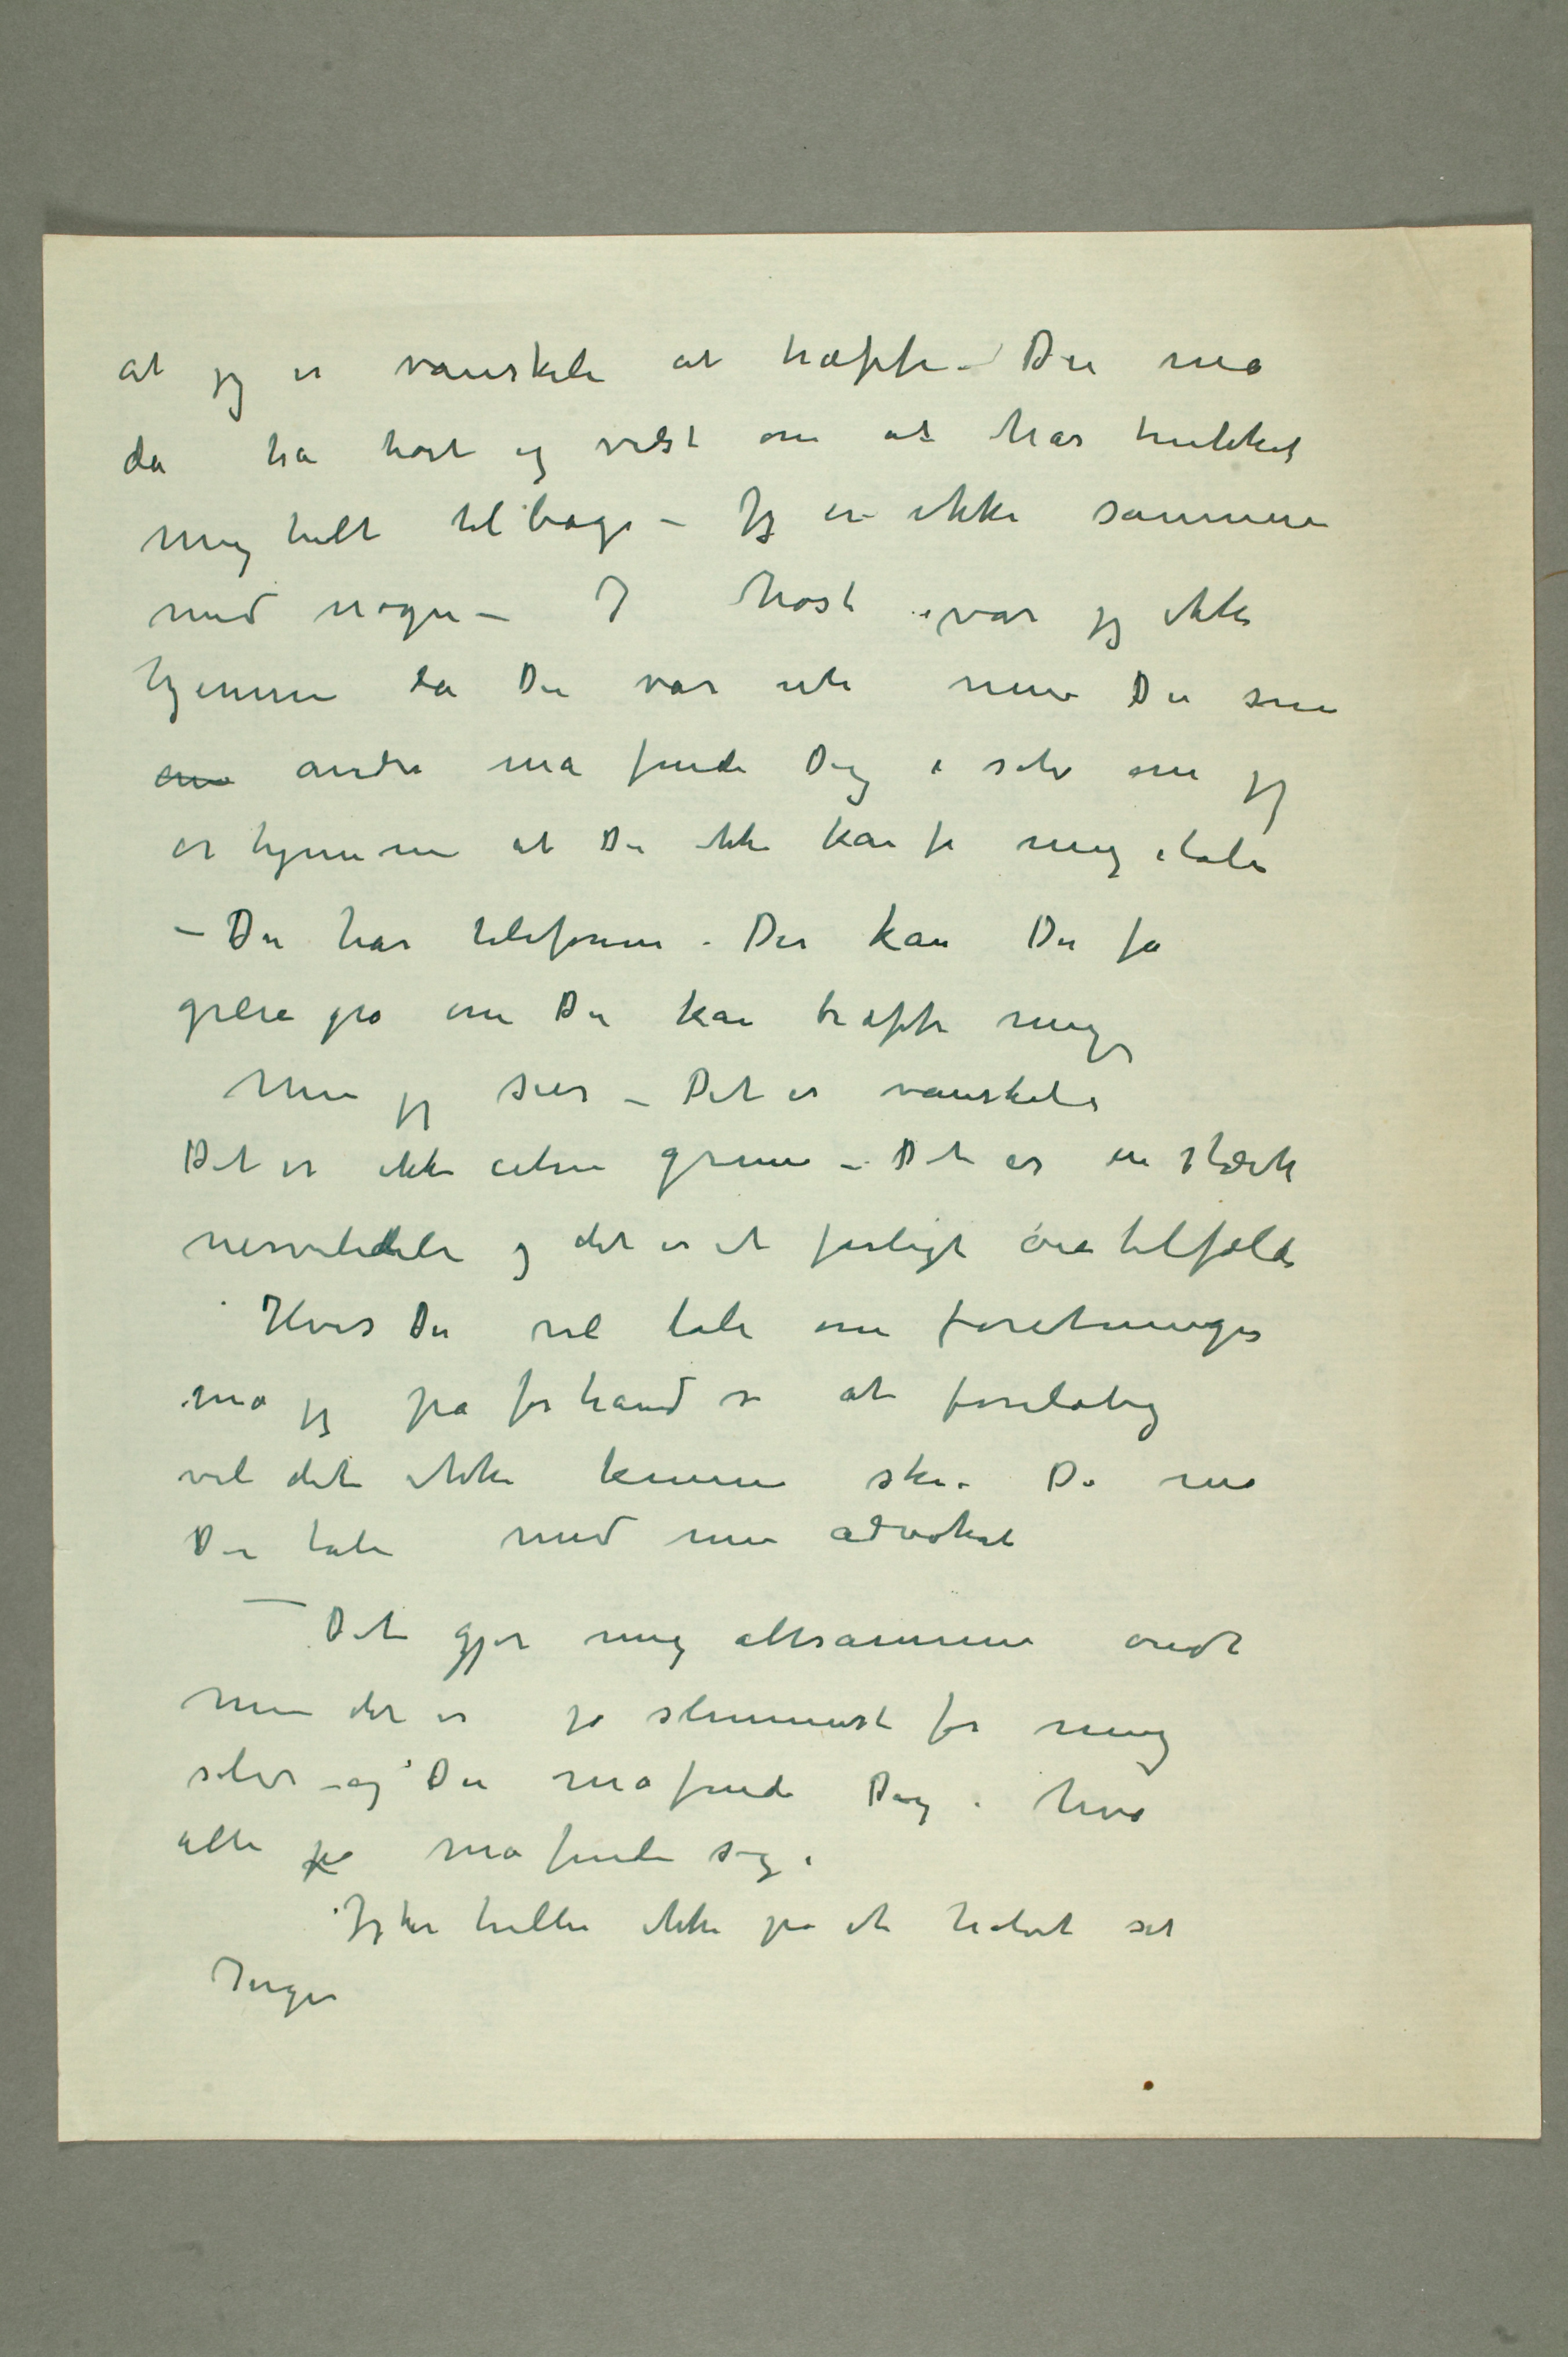 at jeg er vanskeli at træffe. Du må
da ha hørt og vidst om at har trukket
mig helt tilbage – Jeg er ikke sammen
med nogen – I høst var jeg ikke
hjemme da Du var ute men Du som
andre må finde Dig i selv om jeg
er hjemme at Du ikke kan få mig i tale
– Du har telefonen. Der kan Du få
på om Du kan træffe mig
Men jeg sier – Det er vanskeli
Det er ikke uten grunn – Det er en stærk
nervelidelse og det er et farligt øietilfælde
Hvis Du vil tale om forretninger
må jeg på forhånd si at foreløbig
vil det ikke kunne ske. Da må
Du tale med min advokat
– Det gjør mig altsammen ondt
men det er jo slemmest for mig
selv – og Du må finde Dig i hva
alle må finde sig i
Jeg har heller ikke på et halvt set
Inger